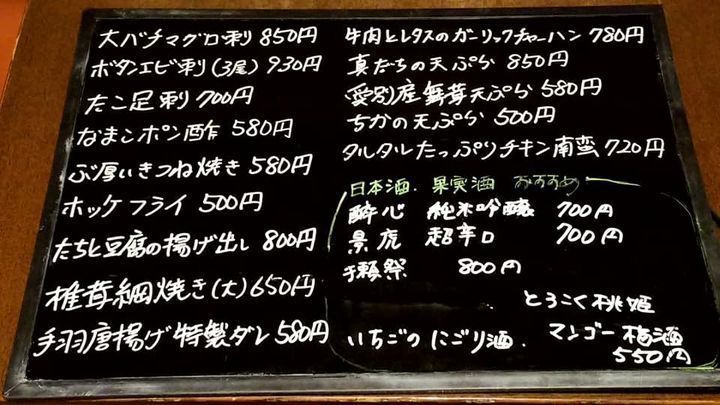 大バチマグロ刺 850円
ボタンエビ刺 (3尾) 930円
たこ足刺 700円
なまこポン酢 580円
ぶ厚いきつね焼き 580円
ホッケフライ 500円
たちと豆腐の揚げ出し 800円
椎茸網焼き (大) 650円
手羽唐揚げ 特製ダレ 580円
牛肉とレタスのガーリックチャーハン 780円
真だちの天ぷら 850円
(愛別)産舞茸天ぷら 580円
ちかの天ぷら 500円
タルタルたっぷりチキン南蛮 720円
日本酒. 果実酒 おすすめ
酔心 純米吟醸 700円
景虎 超辛口 700円
獺祭 800円
とろこく桃姫
いちごのにごり酒. マンゴー梅酒
550円